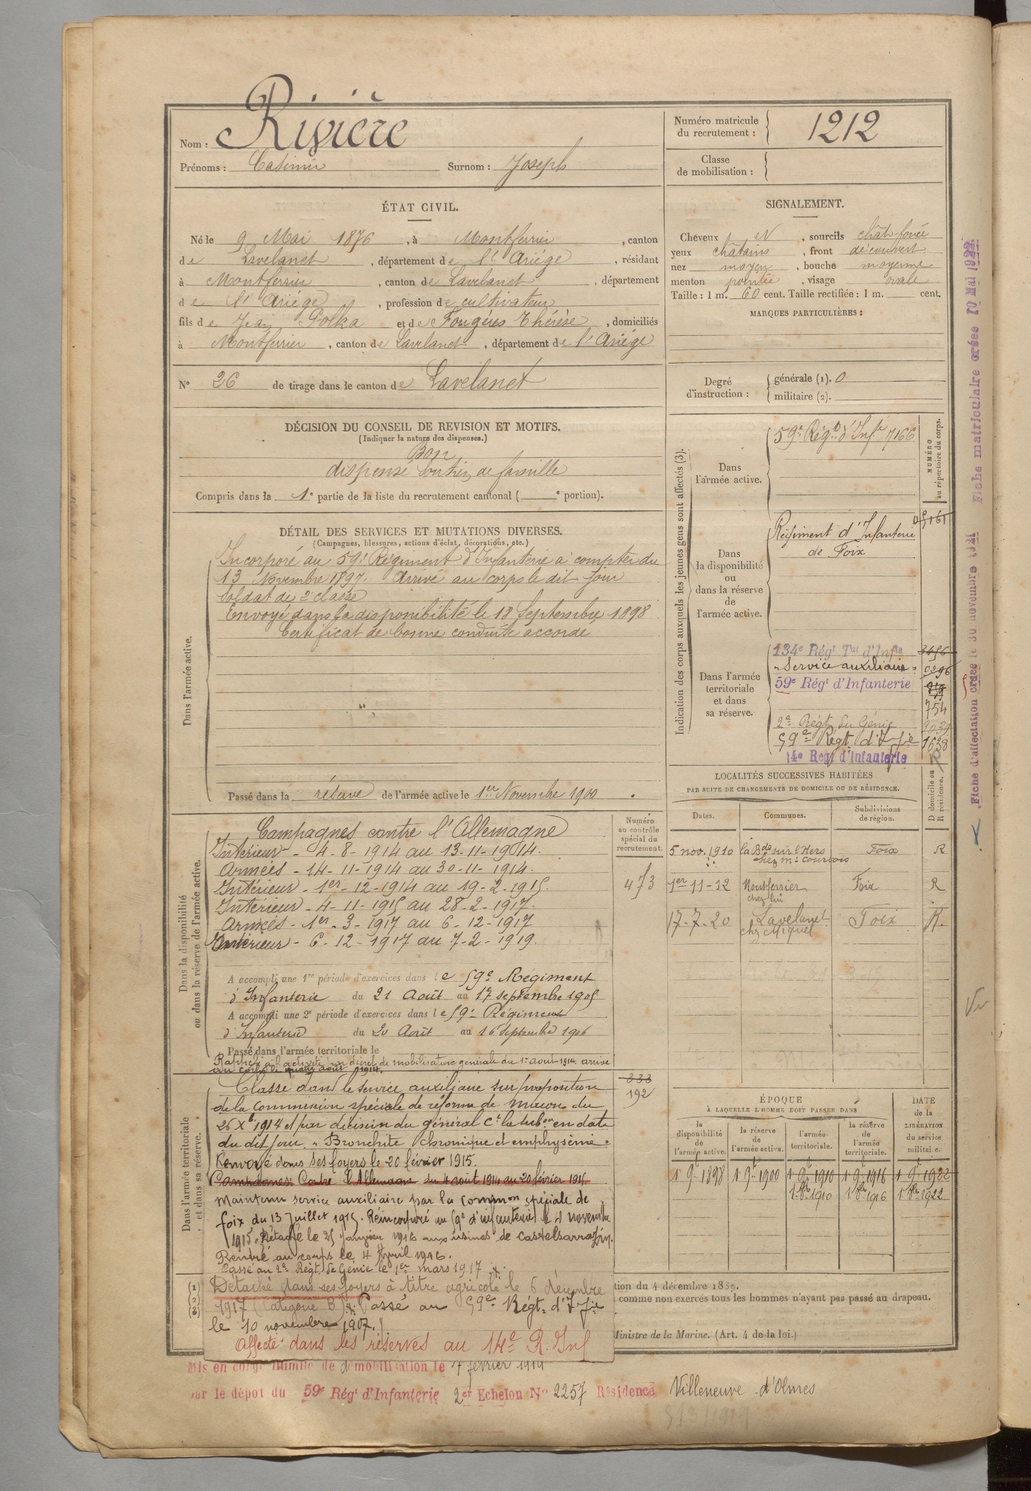 Nom : Rivière
Prénoms : Casimir Surnom : Joseph
Numéro matricule du recrutement : 1212
Classe de mobilisation :
ÉTAT CIVIL.
Né le 9 Mai 1876, à Montferrier, canton
de Lavelanet, département de l'Ariége, résidant
à Montferrier, canton de Lavelanet, département
de l'Ariége, profession de cultivateur
fils de Jean Polka et de Fougéres Thérèse, domiciliés
à Montferrier, canton de Lavelanet, département de l'Ariége
N° 26 de tirage dans le canton de Lavelanet
SIGNALEMENT.
Cheveux N, sourcils chât foncé
yeux châtains, front découvert
nez moyen, bouche moyenne
menton pointée, visage ovale
Taille : 1 m. 60 cent. Taille rectifiée : 1 m. cent.
MARQUES PARTICULIÈRES :
Degré d'instruction : générale (1). 0
militaire (2).
DÉCISION DU CONSEIL DE REVISION ET MOTIFS.
(Indiquer la nature des dispenses.)
Bon
dispensé soutien de famille
Compris dans la 1e partie de la liste du recrutement cantonal ( e portion).
DÉTAIL DES SERVICES ET MUTATIONS DIVERSES.
(Campagnes, blessures, actions d'éclat, décorations, etc.)
Dans l'armée active.
Incorporé au 59e Régiment d'Infanterie à compter du
13 Novembre 1897. Arrivé au corps le dit jour
soldat de 2e classe
Envoyé dans la disponibilité le 18 Septembre 1898
Certificat de bonne conduite accordé
Passé dans la réserve de l'armée active le 1er Novembre 1900
Indication des corps auxquels les jeunes gens sont affectés (3).
NUMÉRO au répertoire du corps.
Dans l'armée active.
59e Régt d'Infie 7166
Dans la disponibilité ou dans la réserve de l'armée active.
Régiment d'Infanterie
de Foix
Dans l'armée territoriale et dans sa réserve.
134e Régt Tal d'Infie
"Service auxiliaire"
59e Régt d'Infanterie
754
2e Régt du Génie
59e Régt d'Infie 1638
14e Régt d'Infanterie
LOCALITÉS SUCCESSIVES HABITÉES
PAR SUITE DE CHANGEMENTS DE DOMICILE OU DE RÉSIDENCE.
Dates. Communes. Subdivisions de région. D domicile ou R résidence.
5 nov. 1910 la Bde sur l'Hers Foix R
chez Mr Courtois
1er-11-12 Montferrier Foix R
chez lui
17-7-20 Lavelanet Foix R.
chez Miquel
Dans la disponibilité ou dans la réserve de l'armée active.
Numéro au contrôle spécial du recrutement.
473
Campagnes contre l'Allemagne
Intérieur - 4-8-1914 au 13-11-1914.
Armées - 14-11-1914 au 30-11-1914.
Intérieur - 1er-12-1914 au 19-2-1915.
Intérieur - 4-11-1915 au 28-2-1917.
Armées - 1er-3-1917 au 6-12-1917
Intérieur - 6-12-1917 au 7-2-1919.
A accompli une 1re période d'exercices dans le 59e Régiment
d'Infanterie du 21 Août au 17 septembre 1905
A accompli une 2e période d'exercices dans le 59e Régiment
d'Infanterie du 20 Août au 16 septembre 1906
Passé dans l'armée territoriale le
Rappelé à l'activité par décret de mobilisation générale du 1er août 1914 arrivé
au corps le quatre août 1914.
333
192
Dans l'armée territoriale et dans sa réserve.
Classé dans le service auxiliaire sur proposition
de la commission spéciale de réforme de Muron du
26 Xbre 1914 et par décision du général Ct la subon en date
du dit jour "Bronchite chronique et emphysème"
Renvoyé dans ses foyers le 20 février 1915.
Campagnes : Contre l'Allemagne du 4 août 1914 au 20 février 1915
Maintenu service auxiliaire par la common spéciale de
foix du 13 Juillet 1915. Réincorporé au 59e d'infanterie le 4 novembre
1915. Détaché le 25 janvier 1916 aux usines de Castelsarrasin.
Rentré au corps le 4 Avril 1916.
Passé au 2e Régt de Génie le 1er mars 1917
Détaché dans ses foyers à titre agricole le 6 décembre
1917 (Catégorie B). Passé au 59e Régt d'Infie
le 10 novembre 1907.
Affecté dans les réserves au 14e R. Inf
ÉPOQUE
À LAQUELLE L'HOMME DOIT PASSER DANS
la disponibilité de l'armée active. la réserve de l'armée active. l'armée territoriale. la réserve de l'armée territoriale.
DATE de la LIBÉRATION du service militaire.
1 9e 1898 1 9e 1900 1 9e 1910 1 9e 1916 1 9e 1922
1 8bre 1910 1 8bre 1916 1 8bre 1922
tion du 4 décembre 1889.
comme non exercés tous les hommes n'ayant pas passé au drapeau.
Ministre de la Marine. (Art. 4 de la loi.)
Mis en congé illimité de démobilisation le 7 février 1919
par le dépot du 59e Régt d'Infanterie 2er Echelon No 2257 Résidence Villeneuve d'Olmes
Fiche d'affectation créée le 30 novembre 1921 Fiche matriculaire créée 10 Mai 1922